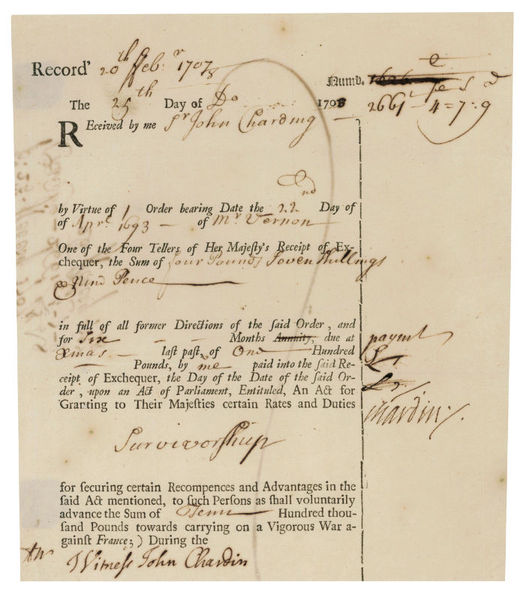 Record' 20th Feb:r 1707/8
Numb.
The 25th Day of Do 1708 2661 l 4 = s 7: d 9
REceived by me Sr John Charding
by Virtue of 1 Order bearing Date the 22nd Day of
of Apr: 1693 of Mr Vernon
One of the Four Tellers of Her Majesty's Receipt of Ex-
chequer, the Sum of four Pounds Seven Shillings
& Nine Pence
in full of all former Directions of the said Order, and
for Six Months Annuity, due at paymt
Xmas last past, of One Hundred
Pounds, by me paid into the said Re-
ceipt of Exchequer, the Day of the Date of the said Or-
der, upon an Act of Parliament, Entituled, An Act for
Granting to Their Majesties certain Rates and Duties
Chardin:
Survivorship
for securing certain Recompences and Advantages in the
said Act mentioned, to such Persons as shall voluntarily
advance the Sum of Tenn Hundred thou-
sand Pounds towards carrying on a Vigorous War a-
gainst France;) During the
Witness John Chardin